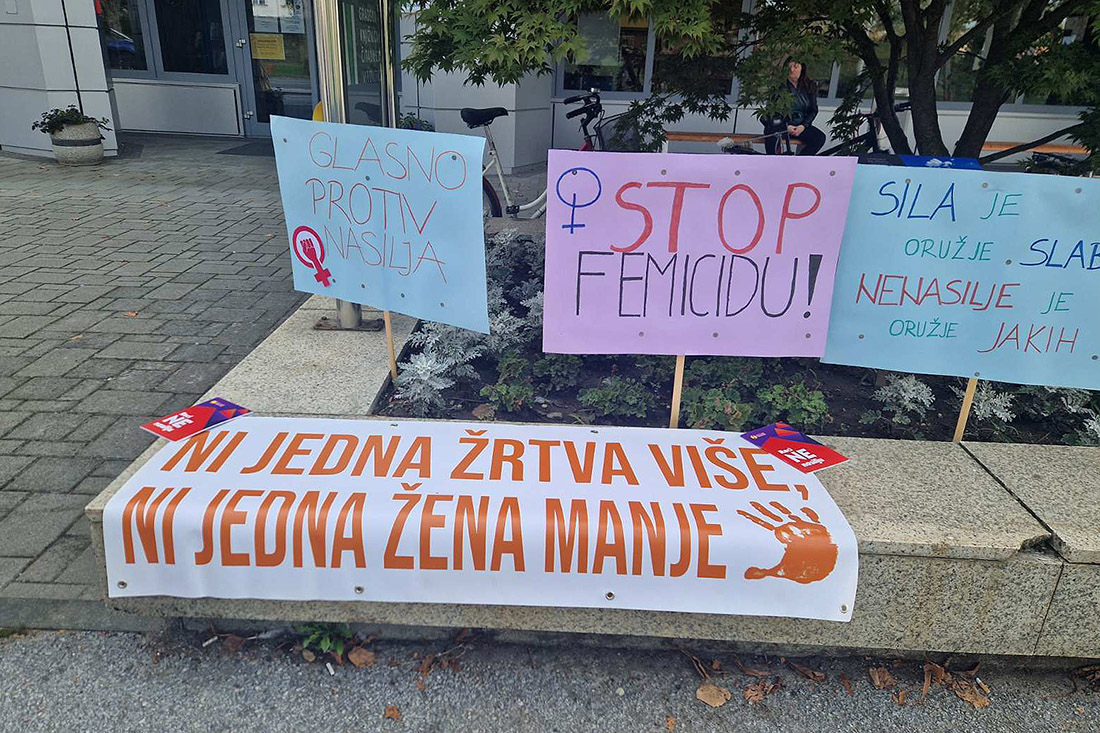 GLASNO
PROTIV
NASILJA
STOP
FEMICIDU!
SILA JE
ORUŽJE
NENASILJE JE
ORUŽJE JAKIH
NI JEDNA ŽRTVA VIŠE,
NI JEDNA ŽENA MANJE
NE